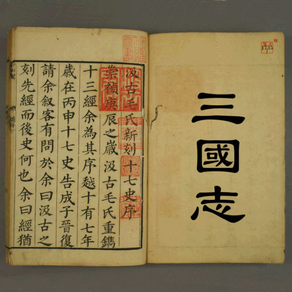 三國志
汲古毛氏新刻十七史序
崇禎庚辰之歲汲古毛氏重鐫
十三經余為其序越十有七年
歲在丙申十七史告成子晉復
請余叙客有問於余曰汲古之
刻先經而後史何也余曰經猶